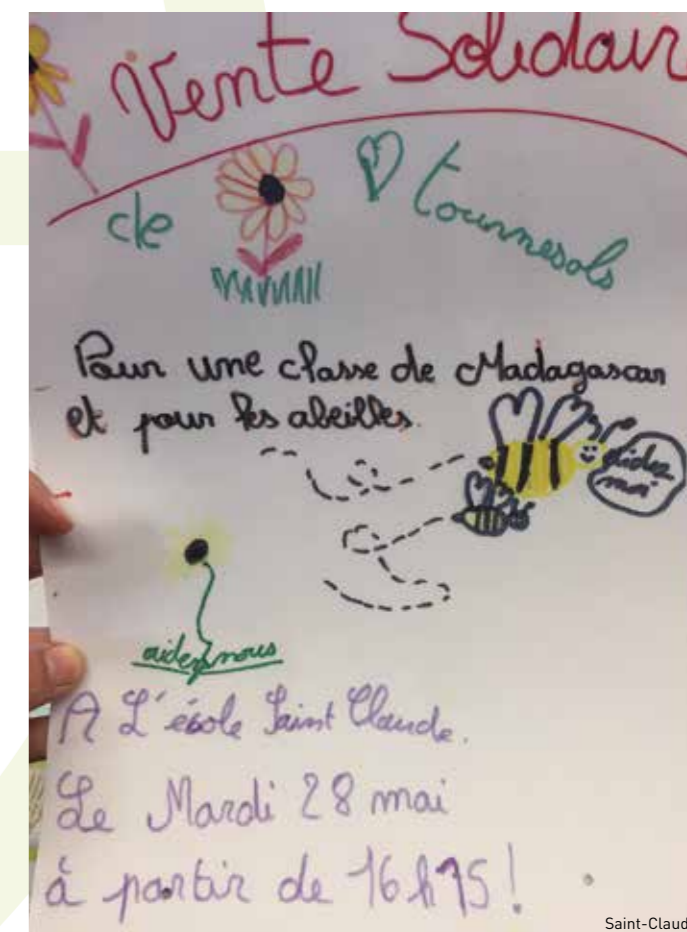 Vente Solidair
de tournesols
Pour une classe de Madagascar
et pour les abeilles.
aidez
moi
aidez nous
A L'école Saint Claude.
Le Mardi 28 mai
à partir de 16h15!
Saint-Claud